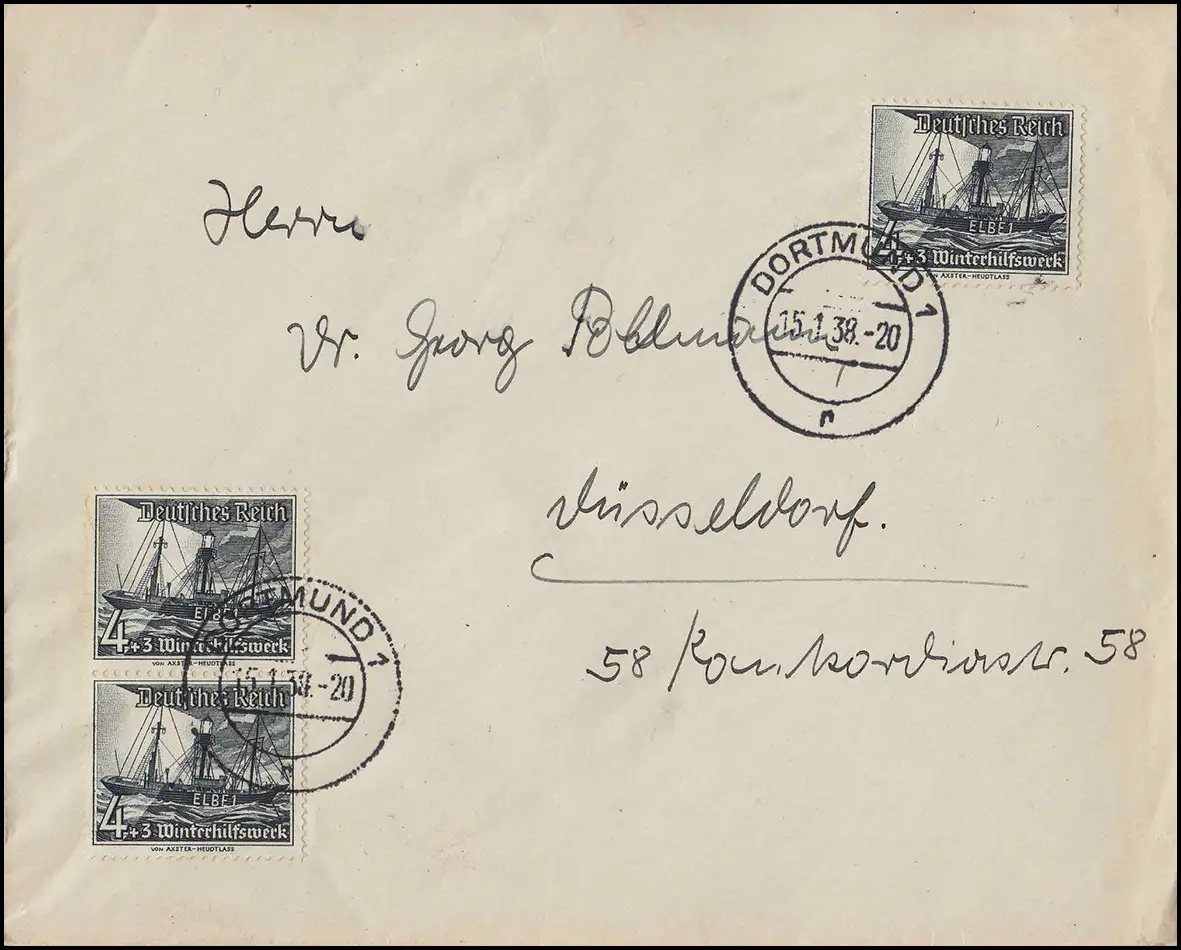 Deutsches Reich
ELBE 1
4+3 Winterhilfswerk
VON AXSTER-HEUDTLASS
Herrn
DORTMUND 1
15.1.38.-20
n
Dr. Georg Pohlmann
Düsseldorf.
58 Konkordiastr. 58
Deutsches Reich
ELBE 1
4+3 Winterhilfswerk
VON AXSTER-HEUDTLASS
DORTMUND 1
15.1.38.-20
Deutsches Reich
ELBE 1
4+3 Winterhilfswerk
VON AXSTER-HEUDTLASS